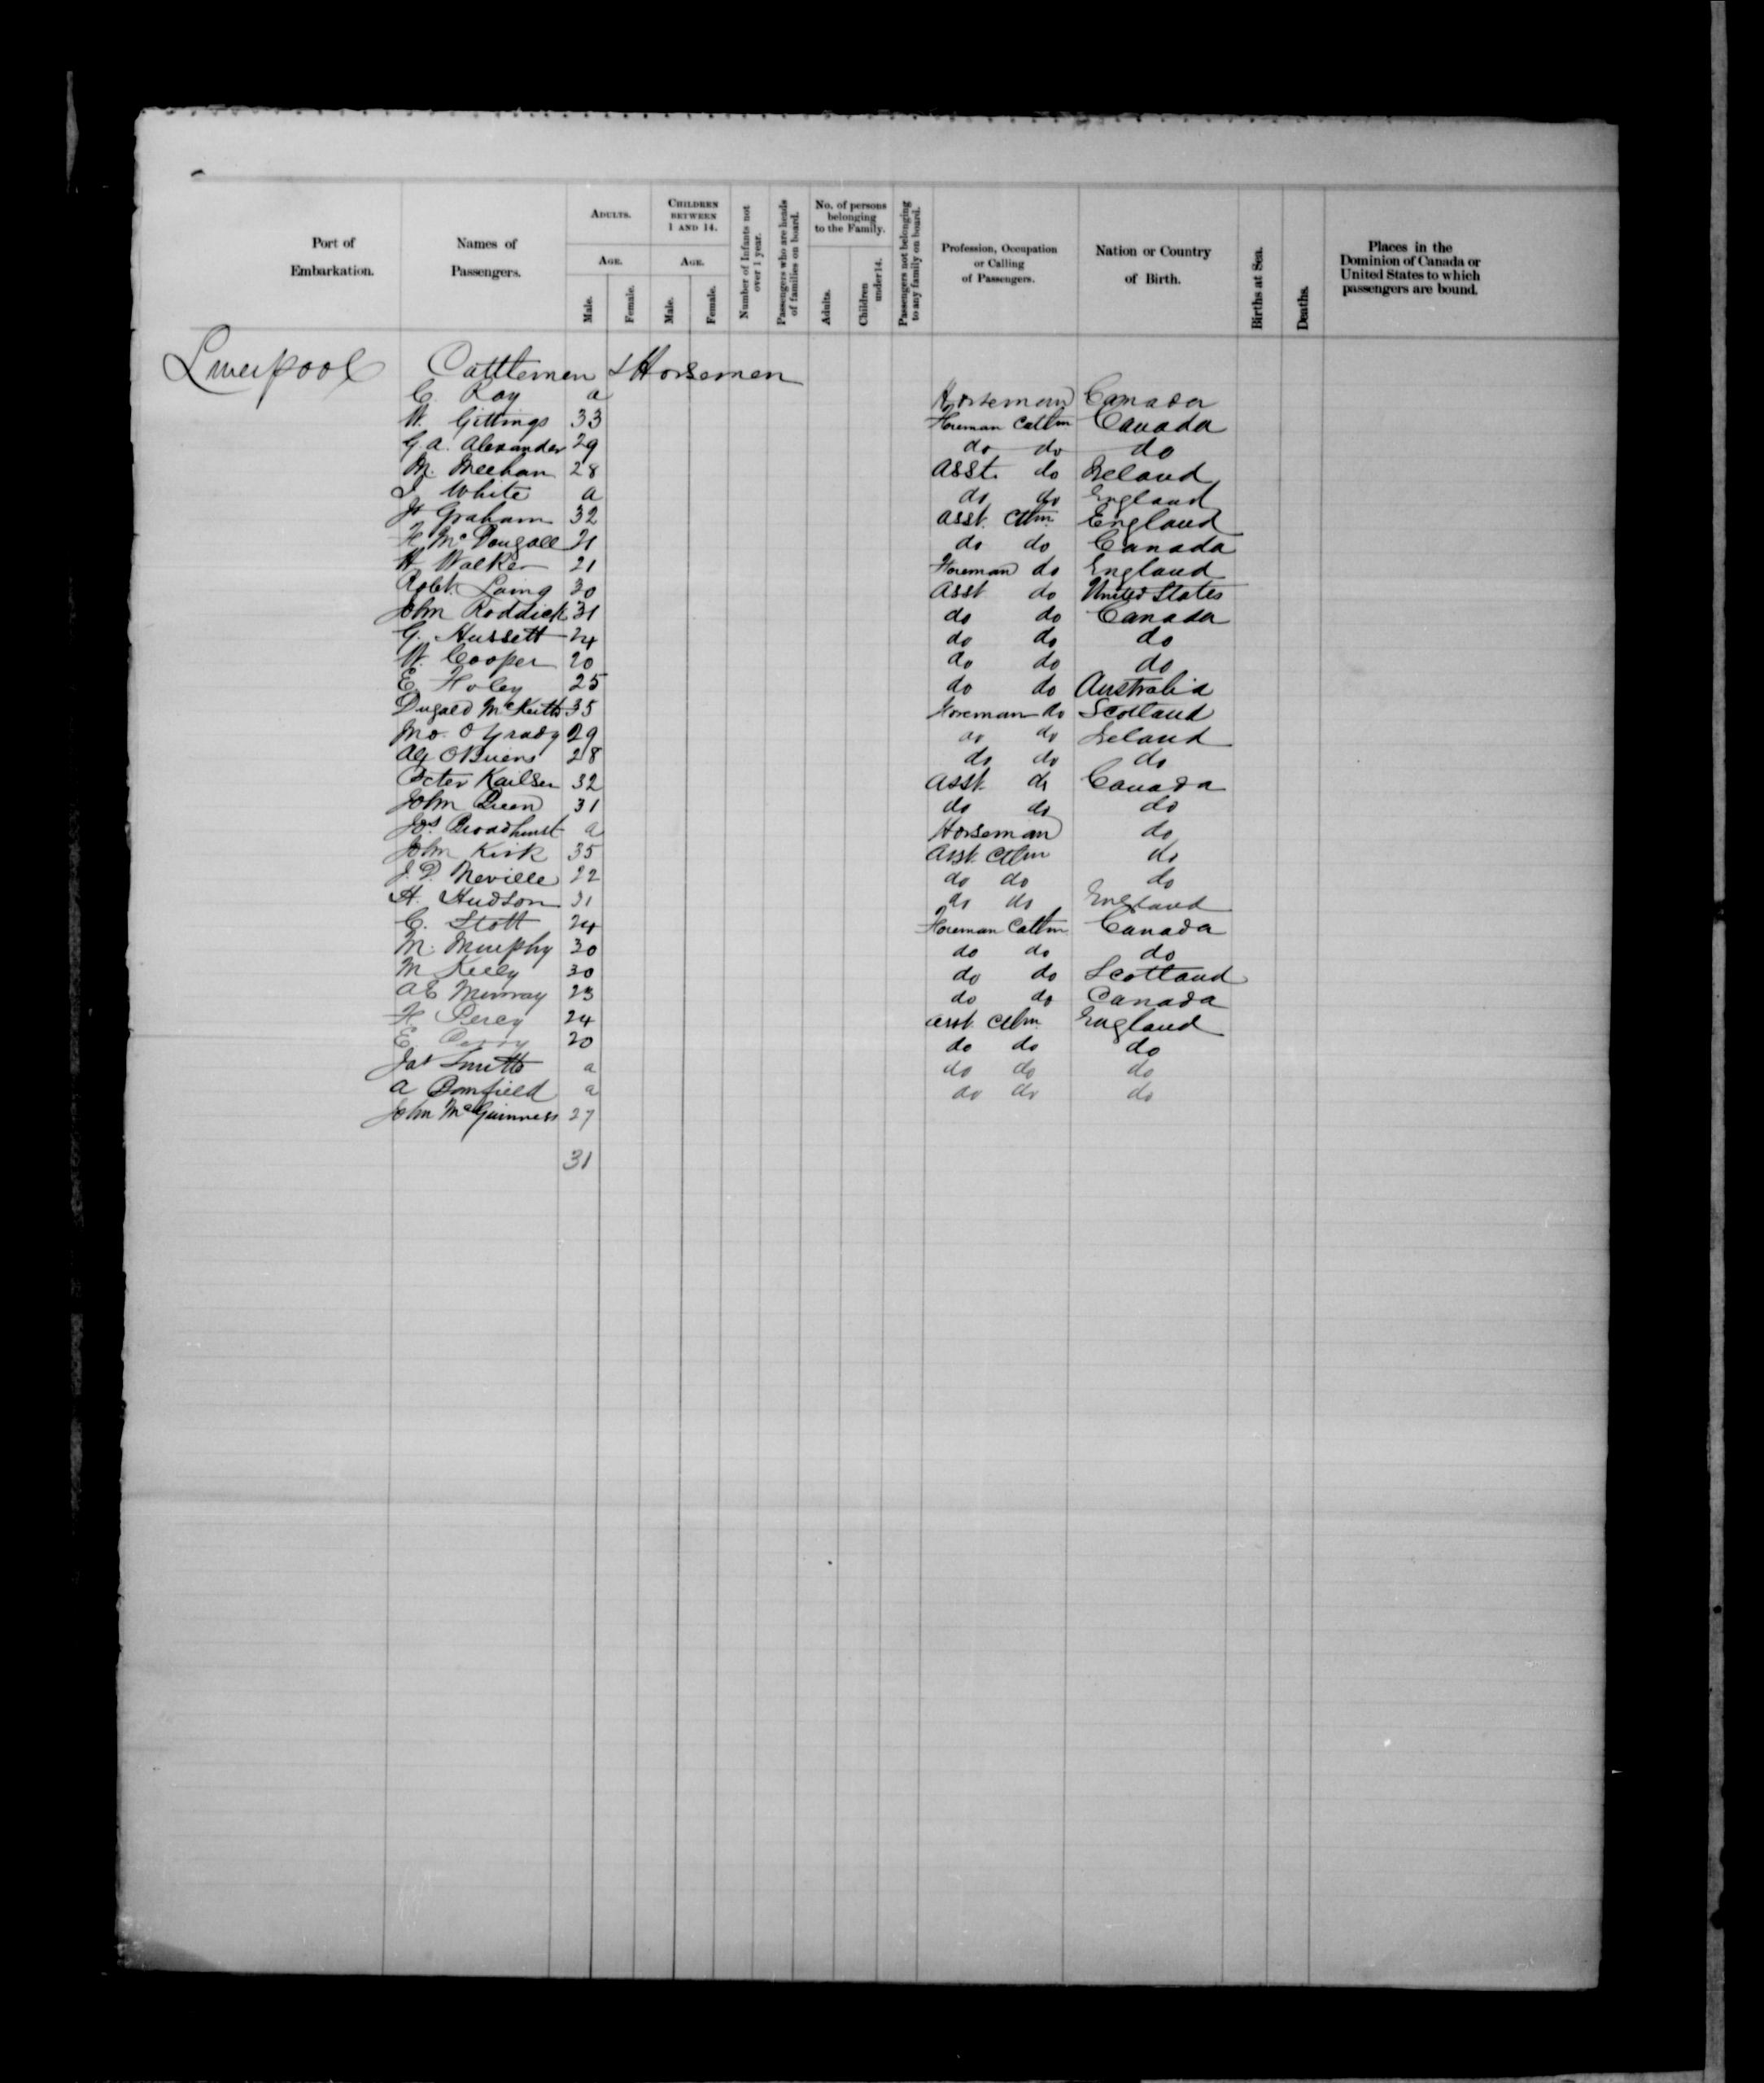 Port of Embarkation.
Names of Passengers.
Adults.
Age.
Male.
Female.
Children between 1 and 14.
Age.
Male.
Female.
Number of Infants not over 1 year.
Passengers who are heads of families on board.
No. of persons belonging to the Family.
Adults.
Children under 14.
Passengers not belonging to any family on board.
Profession, Occupation or Calling of Passengers.
Nation or Country of Birth.
Births at Sea.
Deaths.
Places in the Dominion of Canada or United States to which passengers are bound.
Liverpool Cattlemen & Horsemen
C. Ray a Horseman Canada
W. Gittings 33 Foreman Cattlm Canada
G. A. Alexander 29 do do do
M. Meehan 28 Asst. do Ireland
J White a do do England
Js Graham 32 Asst. Cttm. England
F. Mc Dougall 21 do do Canada
H Walker 21 Foreman do England
Robt. Laing 30 Asst do United States
John Roddick 31 do do Canada
G. Hussett 24 do do do
W. Cooper 20 do do do
E. Foley 25 do do Australia
Dugald McKeith 35 Foreman do Scotland
Jno. O Grady 29 do do Ireland
Alf OBriens 28 do do do
Peter Kailsen 32 Asst. do Canada
John Green 31 do do do
Jos. Broadhurst a Horseman do
John Kirk 35 Asst. Cttm do
J. P. Neville 22 do do do
H. Hudson 31 do do England
C. Stott 24 Foreman Cattm Canada
M. Murphy 30 do do do
M Kelly 30 do do Scotland
A E Murray 23 do do Canada
F. Percy 24 Asst. Cttm. England
E. 20 do do do
Jas Smith a do do do
A Bomfield a do do do
John McGuinness 27
31